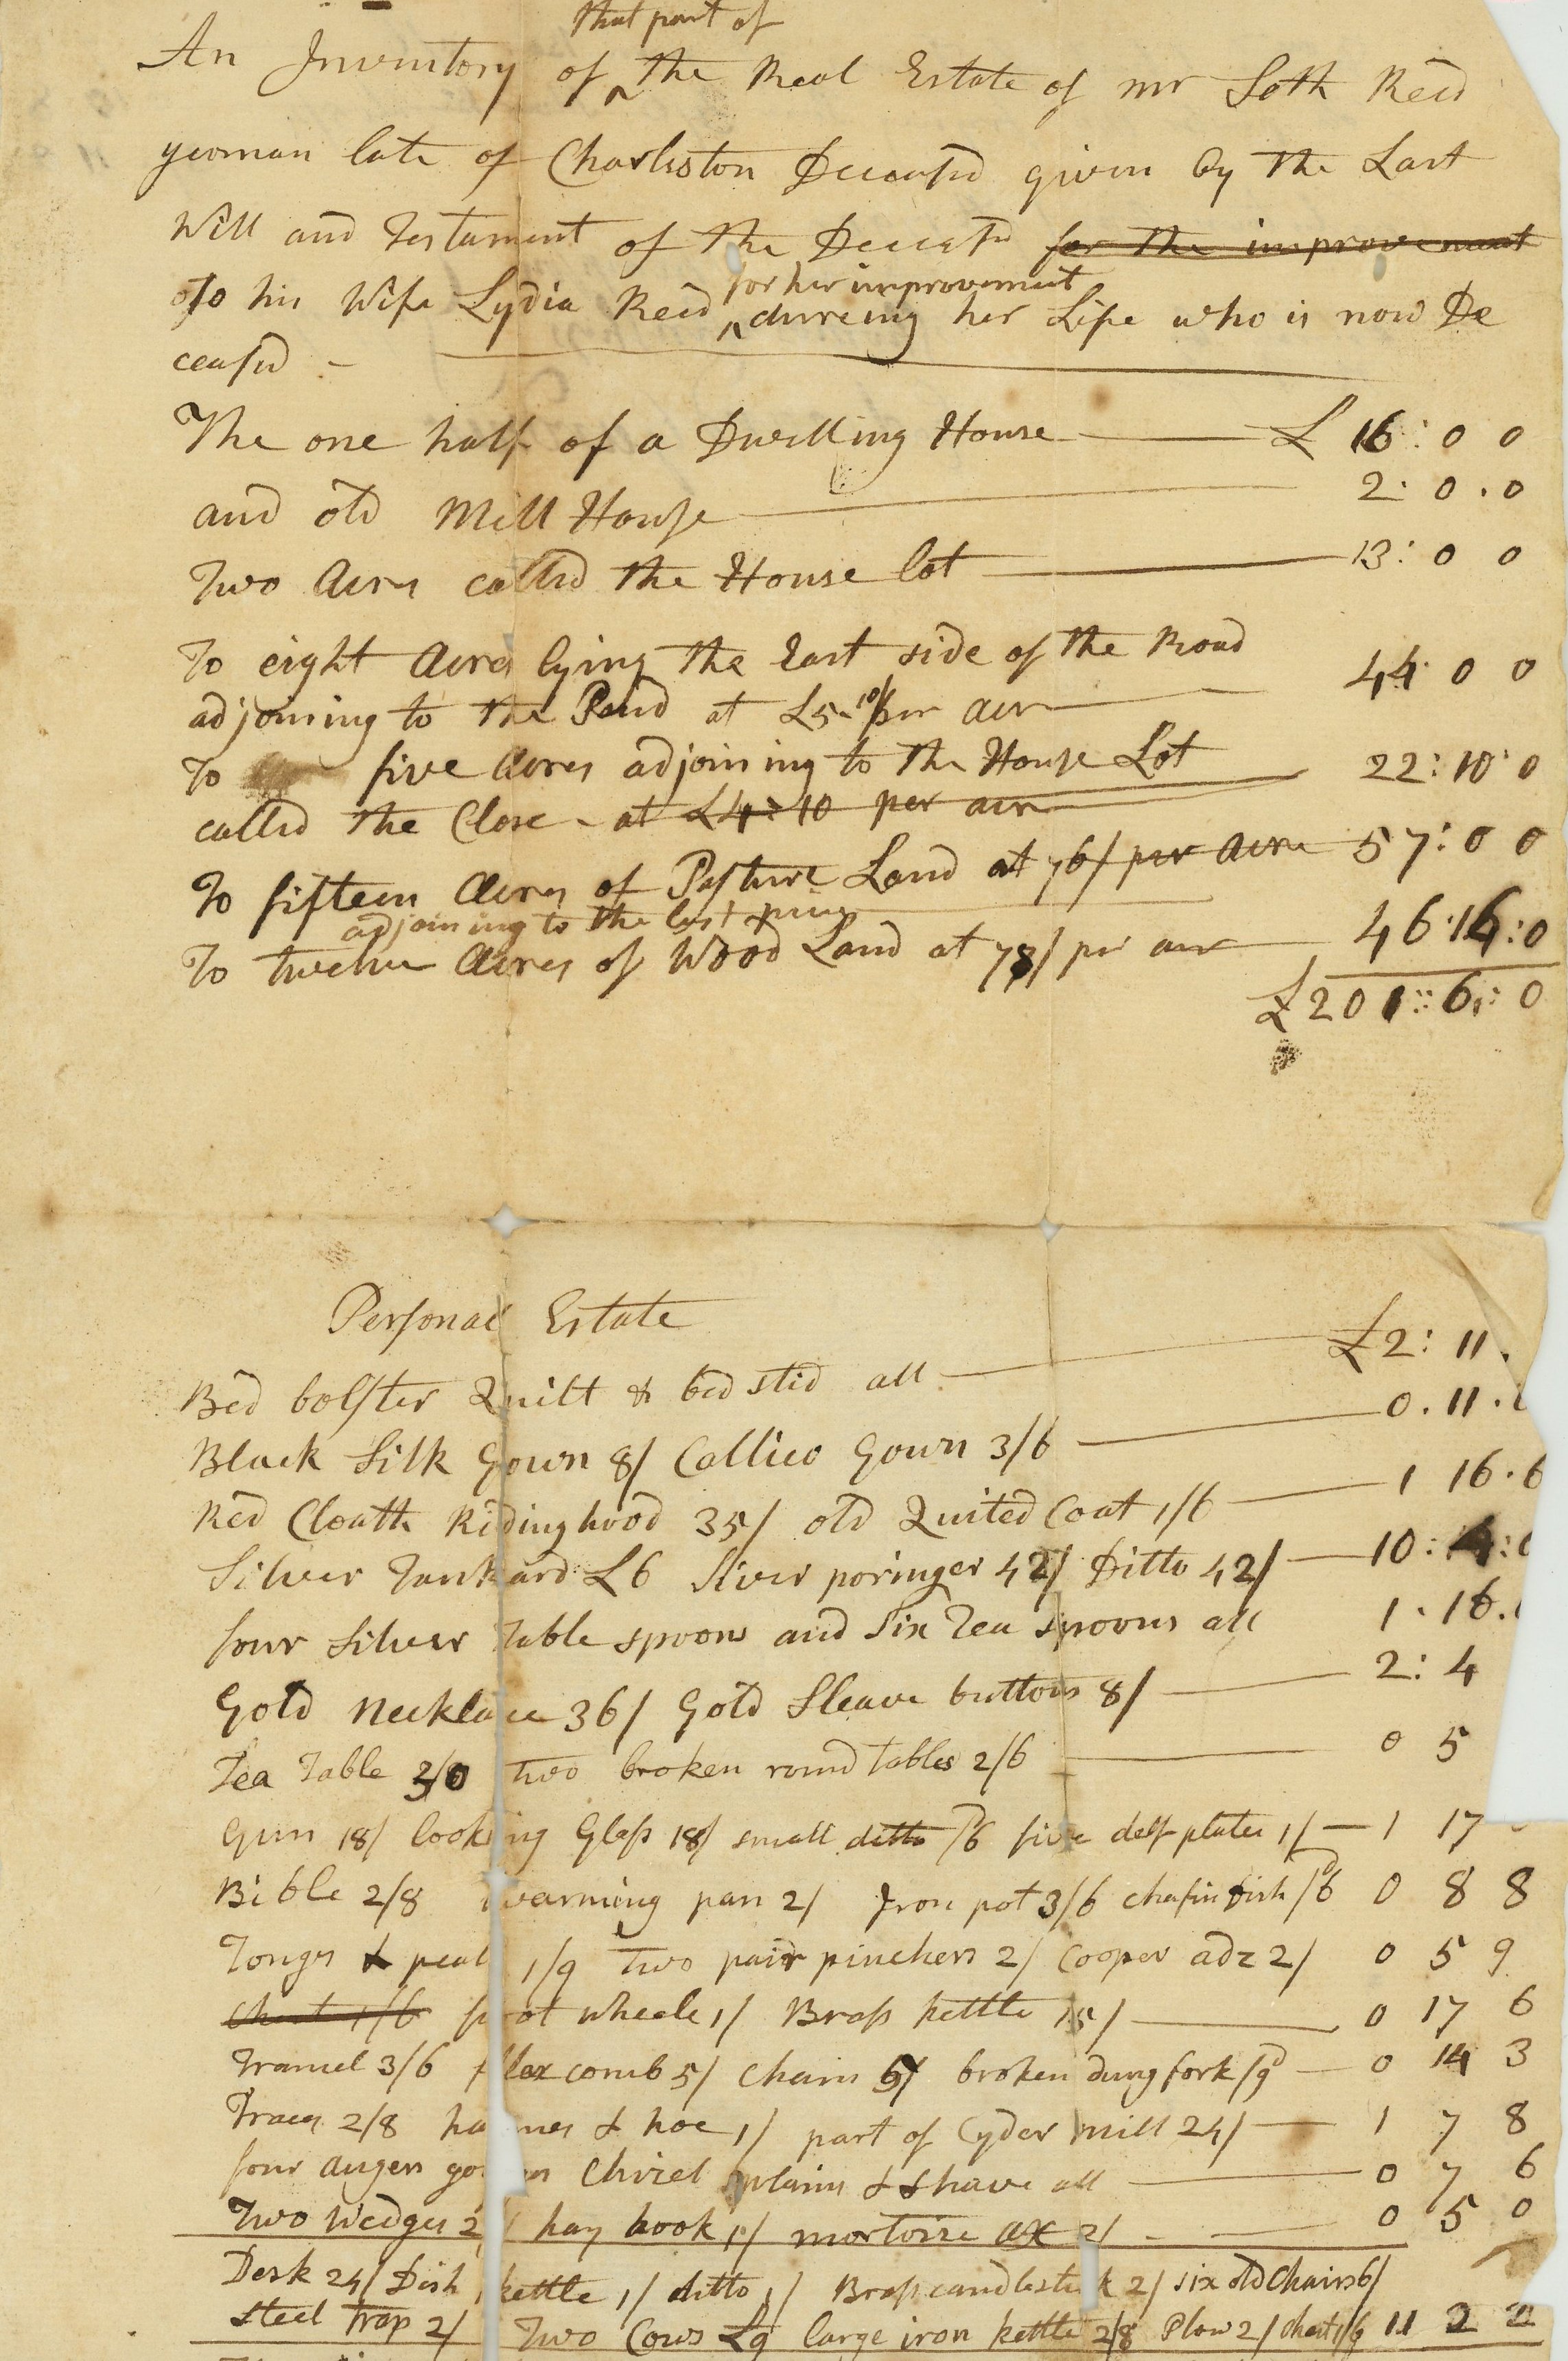 that part of
An Inventory of ^ the Real Estate of mr Seth Reed
yeoman late of Charleston Deceasd given by the Last
Will and Testament of the Deceasd for the improvement
to his Wife Lydia Reed ^ for her improvement dureing her Life who is now De
ceasd -
The one half of a Dwelling House £ 16 : 0 0
and old Mill House 2 . 0 . 0
Two Acres called the House lot 13 : 0 0
To eight Acres lying the East side of the Road
adjoining to the Pond at £5-10/ per acre 44 0 0
To five Acres adjoining to the House Lot 22 : 10 : 0
called the Close - at £4 : 10 per acre
To fifteen Acres of Pasture Land at 76/ per Acre 57 : 0 0
adjoining to the last
To twelve Acres of Wood Land at 78/ pr acre 46 : 16 : 0
£201 : 6 : 0
Personal Estate
Bed bolster Quilt & bed sted all £2 : 11 .
Black Silk Gown 8/ Callico Gown 3/6 0 . 11 .
Red Cloath Ridinghood 35/ old Quited Coat 1/6 1 16 . 6
Silver Tankard £6 Siver poringer 42/ Ditto 42/ 10 : 4 :
four Silver Table spoons and Six Tea spoons all 1 . 16 .
Gold Necklace 36/ Gold Sleave buttons 8/ 2 : 4
Tea Table 3/0 Two broken round tables 2/6 0 5
Gun 18/ looking Glass 18/ small ditto /6 five delf plates 1/ 1 17
Bible 2/8 warming pan 2/ Iron pot 3/6 chafin dish /6 0 8 8
Tongs & peal 1/9 Two pair pinchers 2/ Cooper adz 2/ 0 5 9
Chest 1/6 foot wheele 1/ Brass kettle 15/ 0 17 6
Tramel 3/6 flax comb 5/ Chain 5/ broken dung fork /9 0 14 3
Traces 2/8 hames & hoe 1/ part of Cyder mill 24/ 1 7 8
four augers Chizel plains & shave all 0 7 6
Two Wedges 2/ hay hook 1/ mortoise ax 2/ 0 5 0
Desk 24/ Dish kettle 1/ ditto 1/ Brass candlestick 2/ six old Chairs 6/
Steel Trap 2/ Two Cows £9 large iron kettle 2/8 Plow 2/ chest 1/6 11 2 2